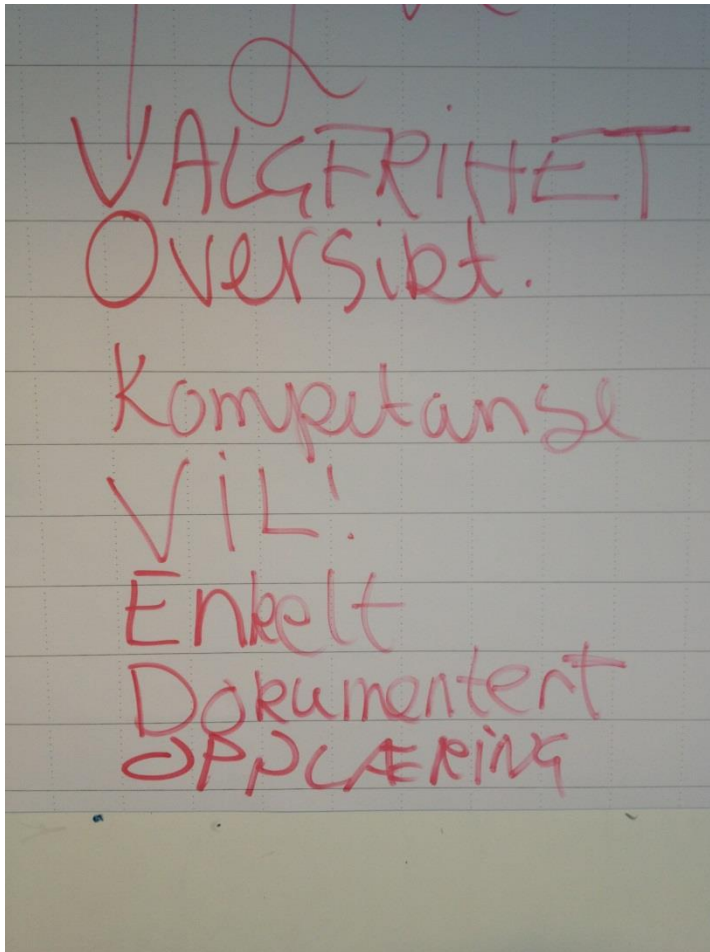 VALGFRIHET
Oversikt.
Kompetanse
ViL!
Enkelt
Dokumentert
OPPLÆRiNG